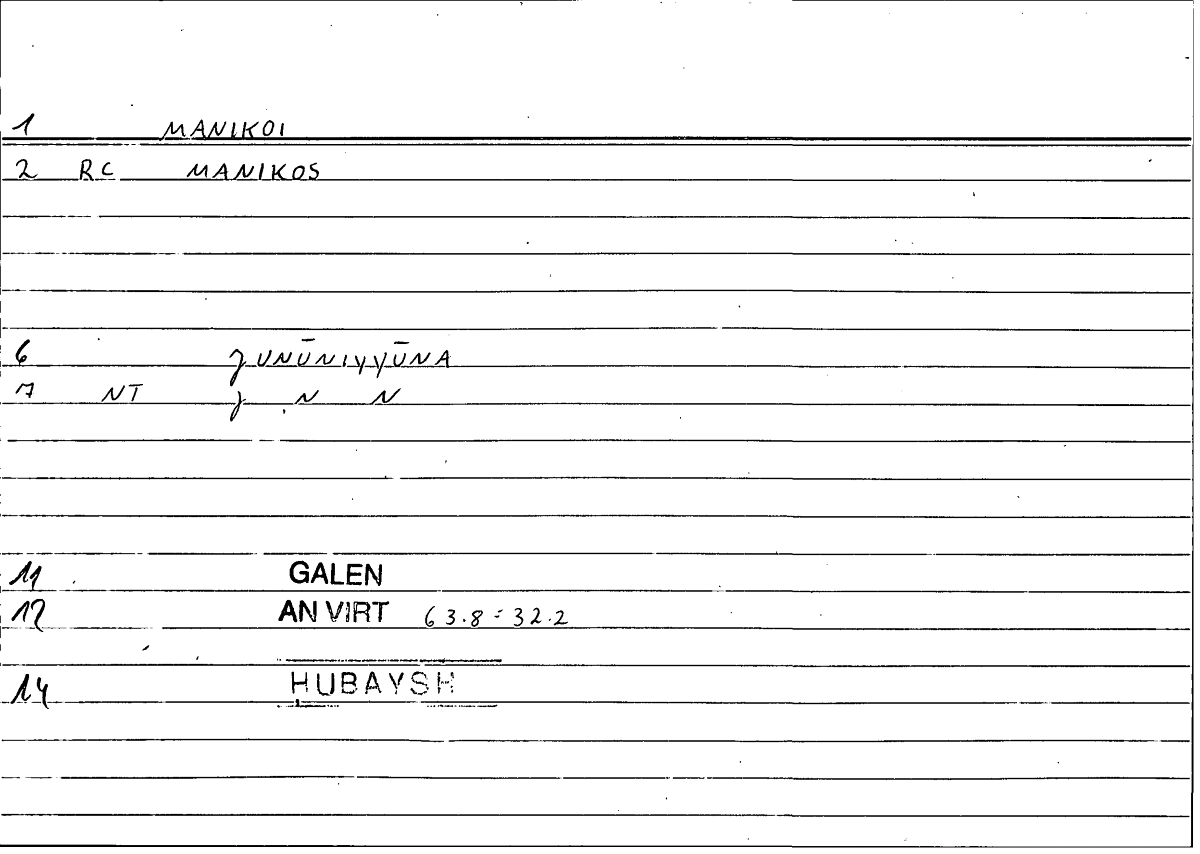 1 MANIKOI
2 RC MANIKOS
6 JUNŪNIYYŪNA
7 NT J N N
11 GALEN
12 AN VIRT 63.8 = 32.2
14 HUBAYSH